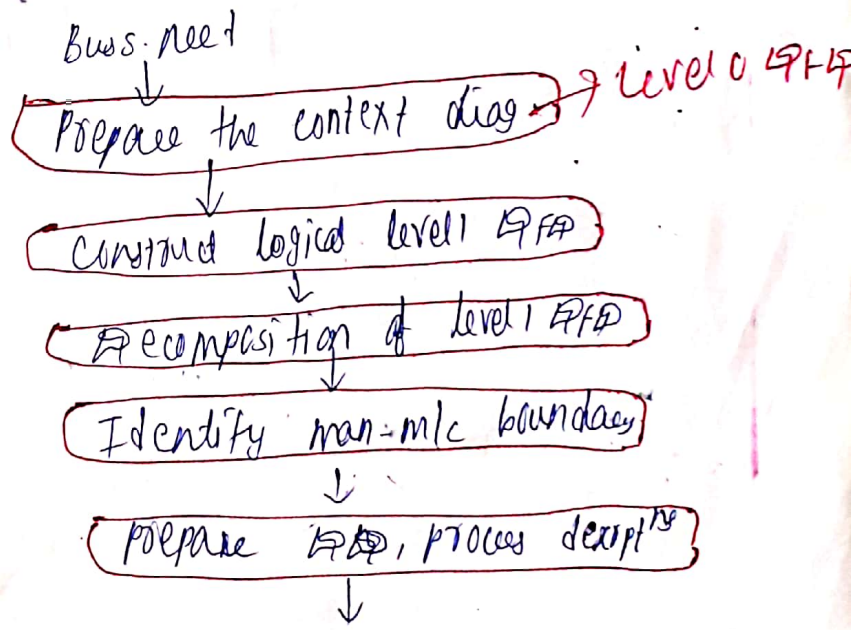 Buss. need
Prepare the context diag → level 0 DFD
Construct logical level 1 DFD
Decomposition of level 1 DFD
Identify man-m/c boundary
prepare DD, process descriptns